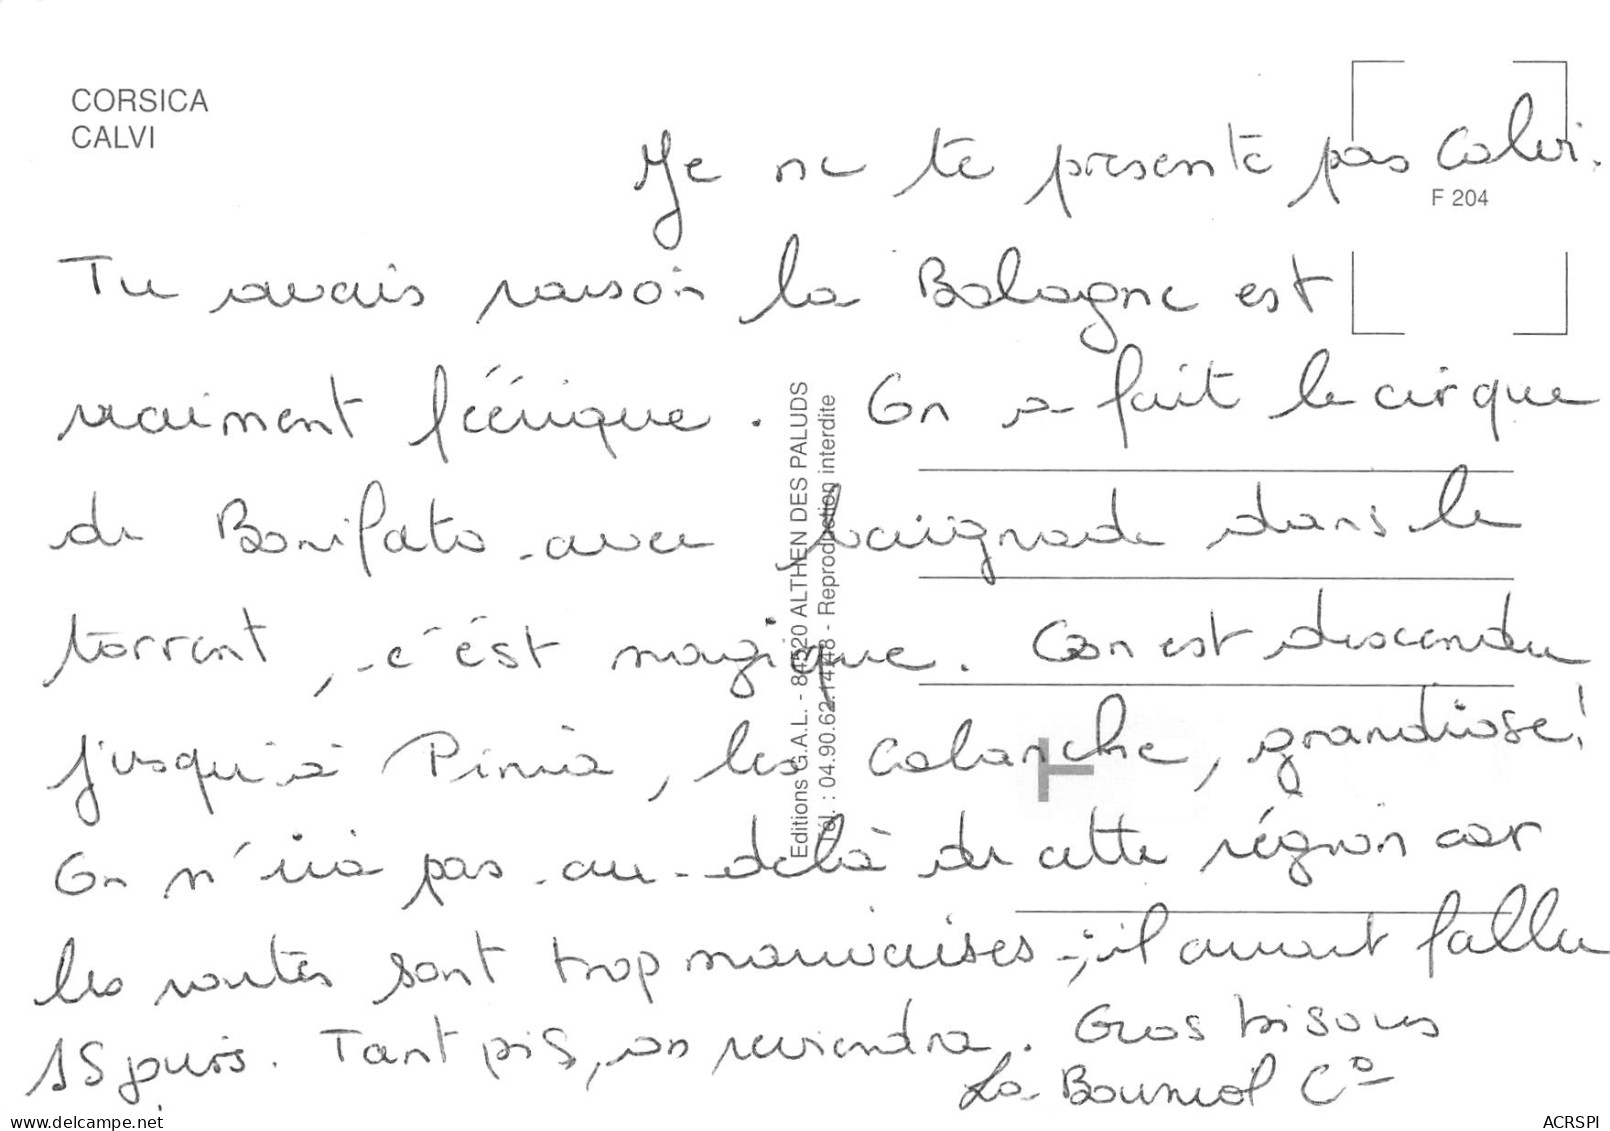 CORSICA
CALVI
Je ne te présente pas Calvi.
F 204
Tu avais raison la Balagne est
vraiment féérique. On a fait le cirque
de Bonifato avec baignade dans le
torrent, c'est magique. On est descendu
jusqu'à Piana, les calanche, grandiose!
On n'ira pas au-delà de cette région car
les routes sont trop mauvaises; il aurait fallu
15 jours. Tant pis, on reviendra. Gros bisous
La Bouniol C°
Editions G.A.L. - 84520 ALTHEN DES PALUDS
Tél. : 04.90.62.14.48 - Reproduction interdite
T
www.delcampe.net
ACRSPI